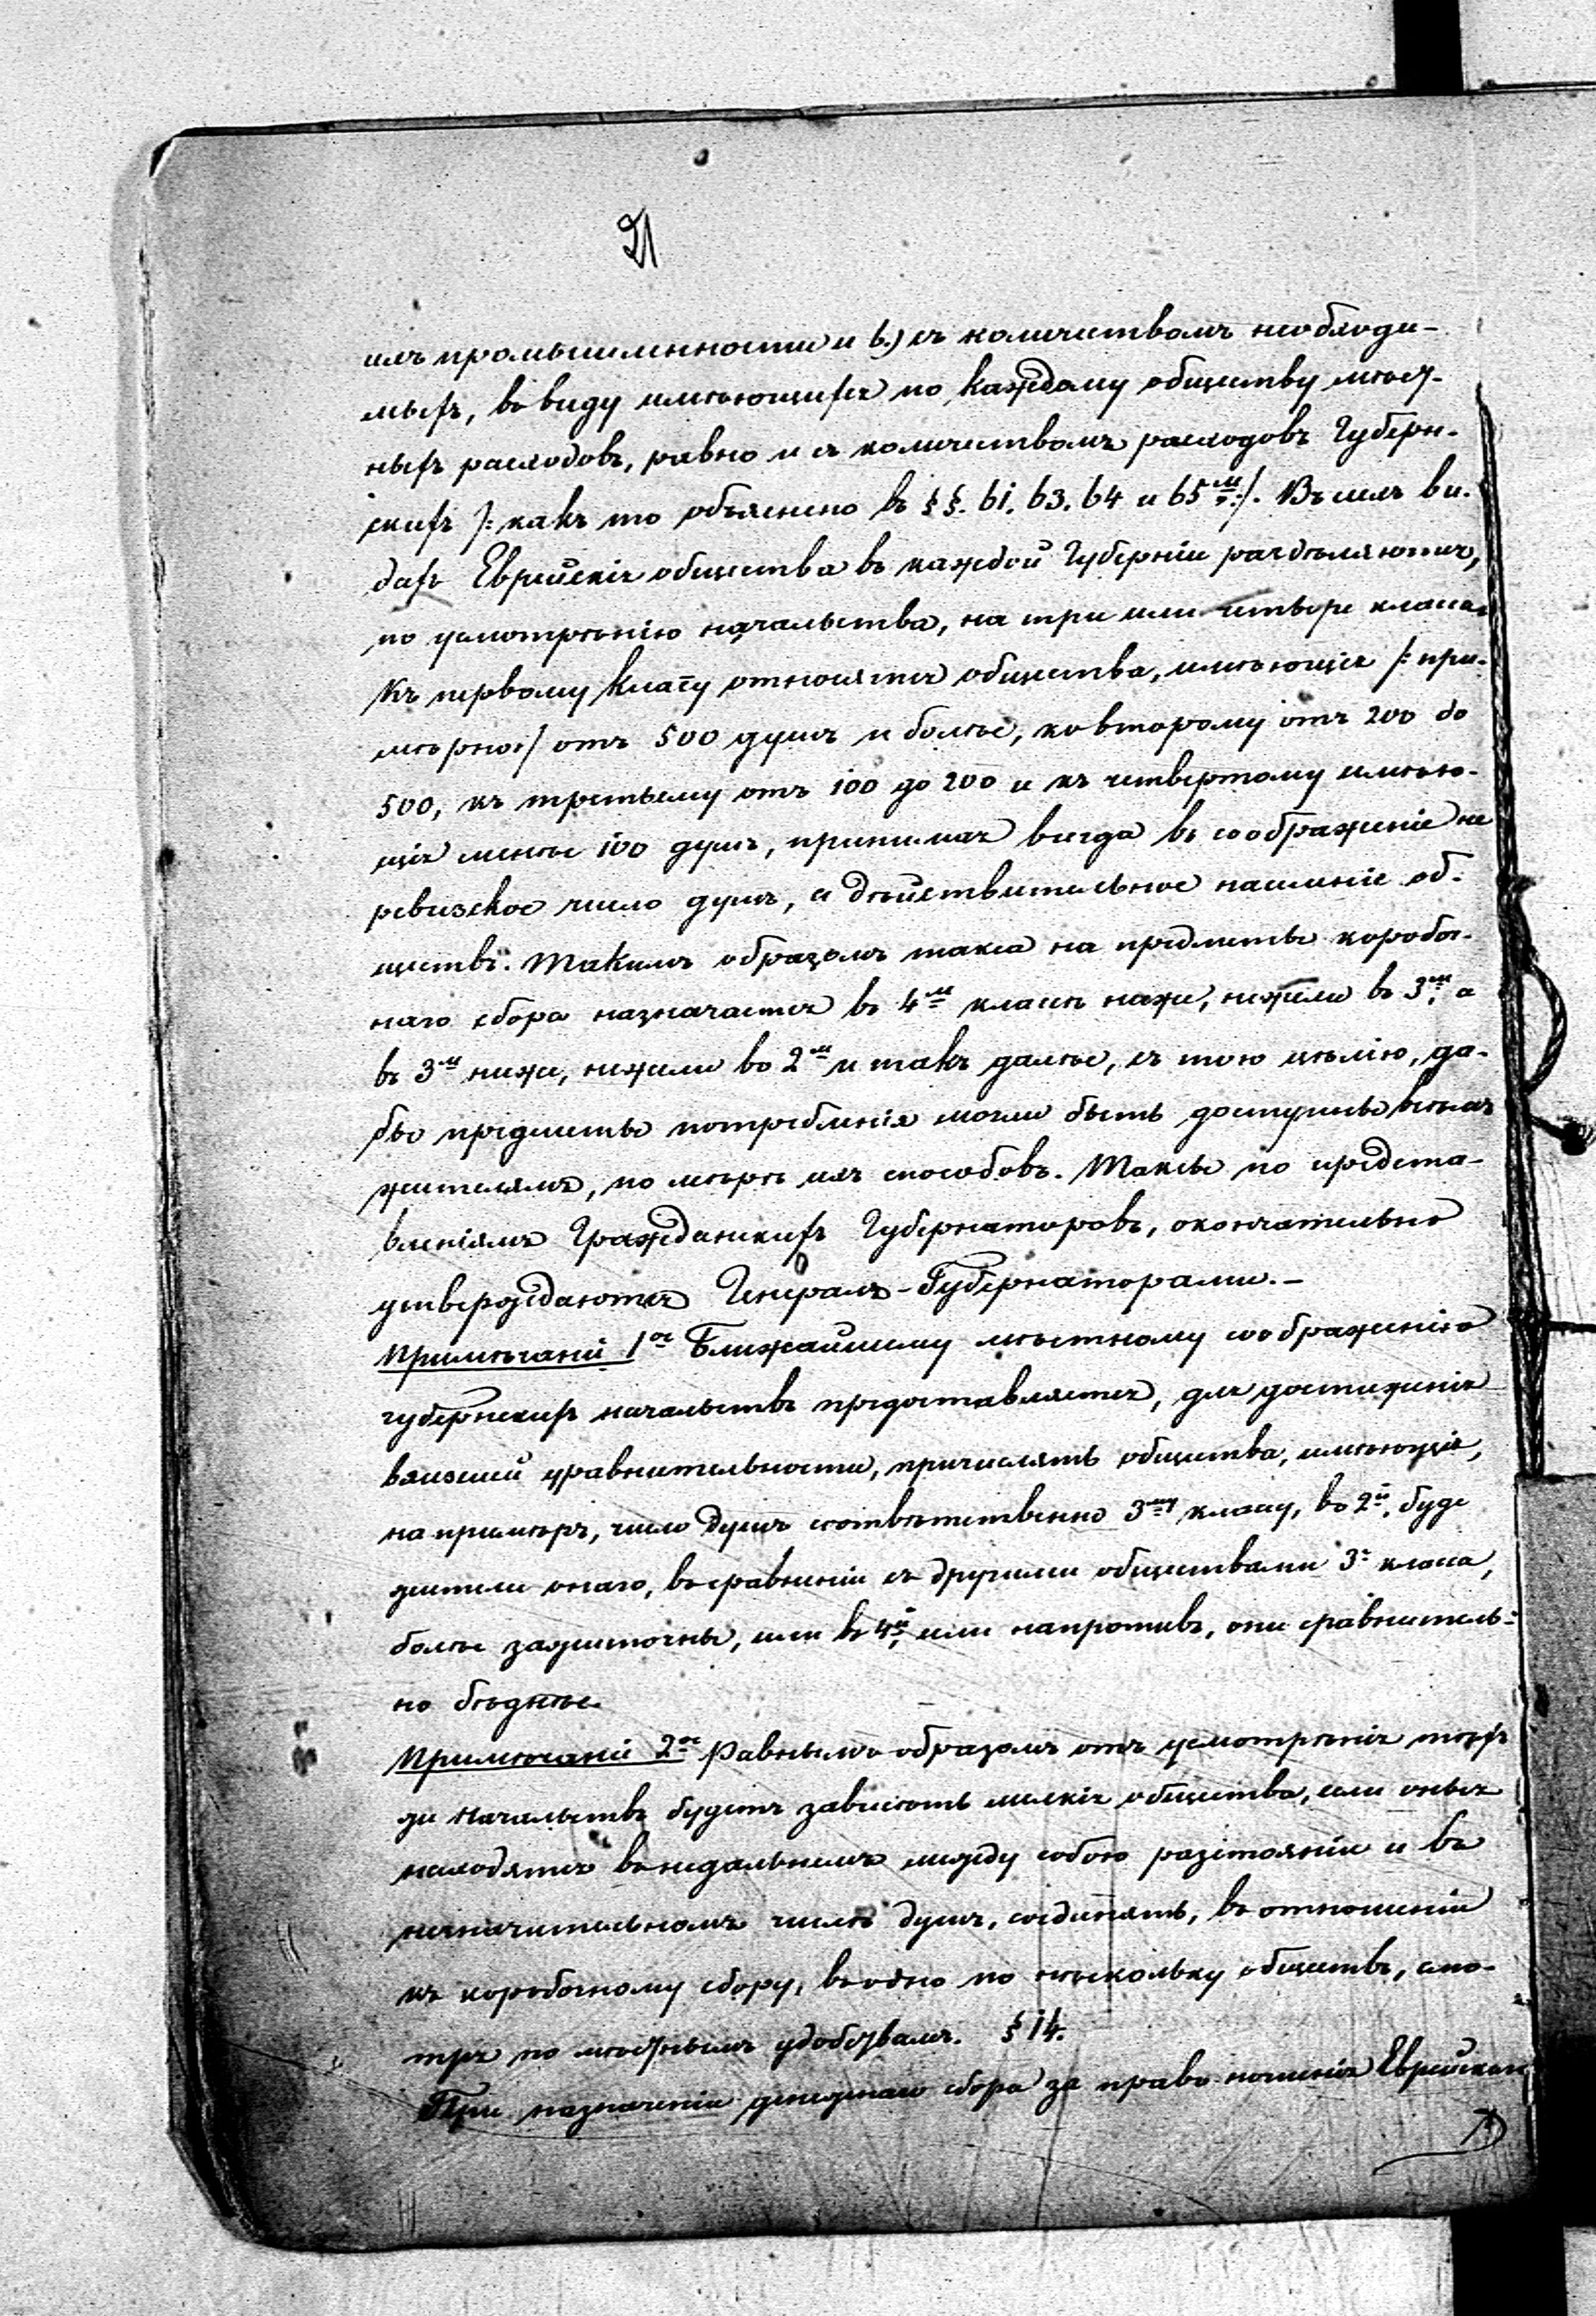 21
ихъ промышленности и в.) съ количествомъ необходи-
мыхъ, въ виду имѣющихся по каждому обществу мѣст-
ныхъ расходовъ, равно и съ количествомъ расходовъ Губерн-
скихъ /: какъ то объяснено въ §§. 61. 63. 64 и 65мъ:/. Въ сихъ ви-
дахъ Еврейскія общества въ каждой Губерніи раздѣляются,
по усмотрѣнію начальства, на три или четыре класса.
Къ первому классу относятся общества, имѣющія /: при-
мѣрно:/ отъ 500 душъ и болѣе, ко второму отъ 200 до
500, къ третьему отъ 100 до 200 и къ четвертому имѣю-
щія менѣе 100 душъ, принимая всегда въ соображеніе не
ревизское число душъ, а дѣйствительное населеніе об-
ществъ. Такимъ образомъ такса на предметы коробоч-
наго сбора назначается въ 4мъ классѣ ниже, нежели въ 3мъ, а
въ 3мъ ниже, нежели во 2мъ и такъ далѣе, съ тою цѣлію, да-
бы предметы потребленія могли быть доступны всѣмъ
жителямъ, по мѣрѣ ихъ способовъ. Таксы по предста-
вленіямъ Гражданскихъ Губернаторовъ, окончательно
утверждаются Генералъ-Губернаторами.—
Примѣчаніе 1ое Ближайшему мѣстному соображенію
губернскихъ начальствъ предоставляется, для достиженія
взаимной уравнительности, причислять общества, имѣющія,
на примѣръ, число душъ соотвѣтственно 3му классу, во 2й, буде
жители онаго, въ сравненіи съ другими обществами 3го класса,
болѣе зажиточны, или въ 4й, или напротивъ, они сравнитель-
но бѣднѣе.
Примѣчаніе 2ое Равнымъ образомъ отъ усмотрѣнія тѣхъ
же Начальствъ будетъ зависѣть мелкія общества, если оныя
находятся въ недальнемъ между собою разстояніи и въ
незначительномъ числѣ душъ, соединять, въ отношеніи
къ коробочному сбору, въ одно по нѣскольку обществъ, смо-
тря по мѣстнымъ удобствамъ. § 14.
При назначеніи денежнаго сбора за право ношенія Еврейской